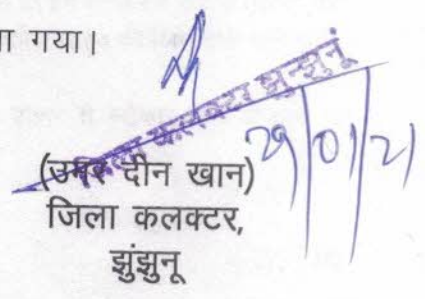 ा गया।
जिला कलक्टर झुन्झुनूं
29/01/21
(उमर दीन खान)
जिला कलक्टर,
झुंझुनू